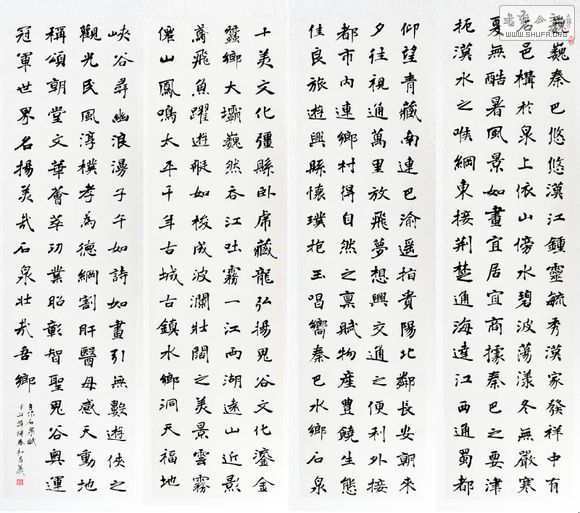 巍巍秦巴悠悠漢江鍾靈毓秀漢家發祥中有
名邑構於泉上依山傍水碧波蕩漾冬無嚴寒
夏無酷暑風景如畫宜居宜商據秦巴之要津
扼漢水之喉綱東接荆楚通海達江西通蜀都
仰望青藏南連巴渝遥拍貴陽北鄰長安朝來
夕往視通萬里放飛夢想興交通之便利外接
都市内連鄉村得自然之禀賦物產豊饒生態
佳良旅遊興縣懷璞抱玉唱嚮秦巴水鄉石泉
十美文化彊縣卧虎藏龍弘揚鬼谷文化鎏金
蠶鄉大壩巍然吞江吐霧一江两湖遠山近影
鳶飛魚躍遊艇如梭成波瀾壯闊之美景雲霧
僊山鳳鳴太平千年古城古鎮水鄉洞天福地
峽谷尋幽浪漫子午如詩如畫引無數遊俠之
觀光民風淳樸孝為德綱割肝醫母感天動地
稱頌朝堂文華薈萃功業昭彰智聖鬼谷奥運
冠軍世界名揚美哉石泉壯哉吾鄉
自作石泉賦
WWW.SHUFA.ORG